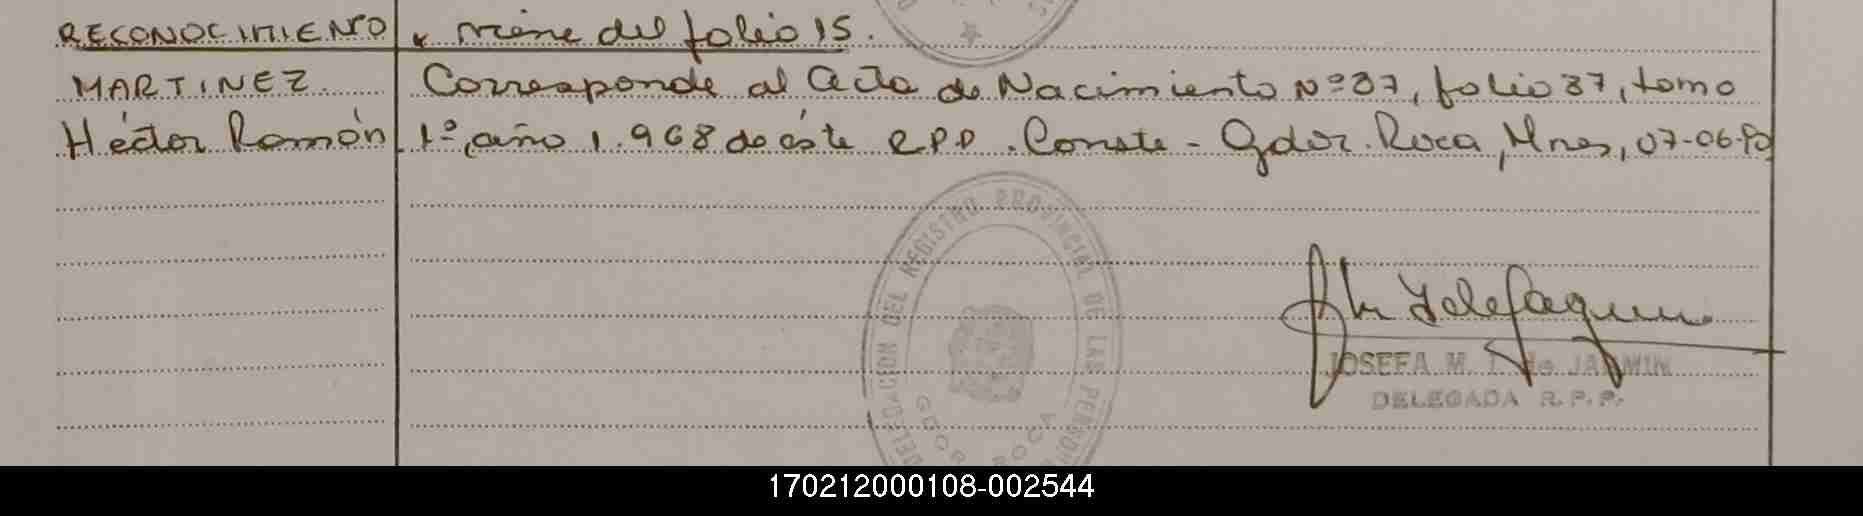 RECONOCIMIENTO viene del folio 15.
MARTINEZ. Corresponde al Acta de Nacimiento Nº 37, folio 37, tomo
Héctor Ramón 1º, año 1.968 de éste RPP. Conste - Gdor. Roca, Mnes, 07-06-
DELEGACION DEL REGISTRO PROVINCIAL DE LAS PERSONAS
GDOR. ROCA
JOSEFA M. de
DELEGADA R.P.P.
170212000108-002544